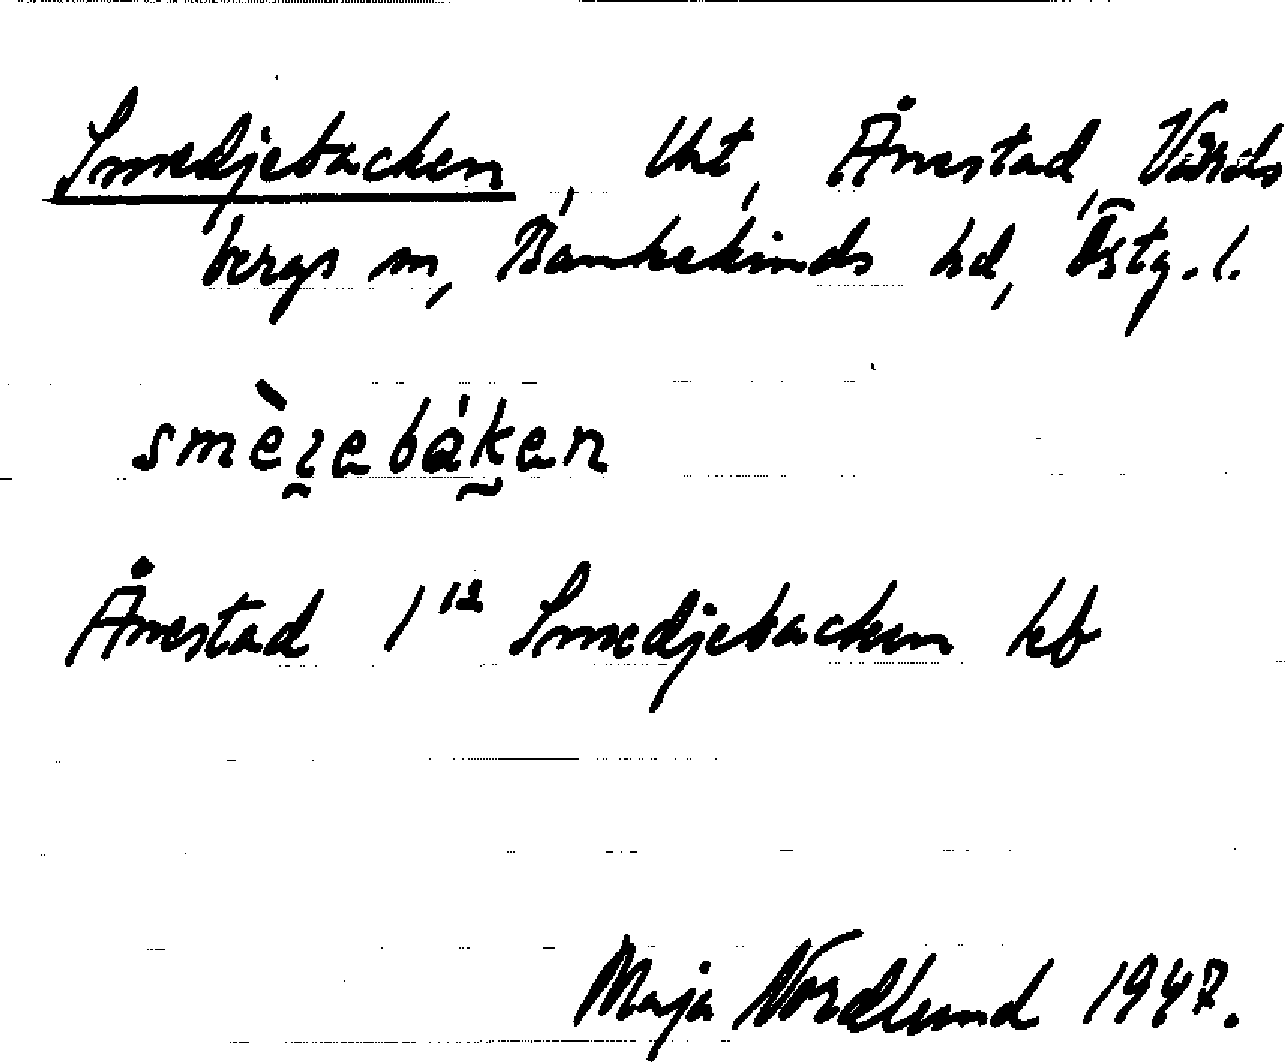 Smedjebacken, lht, Ånestad, Vårds
bergs sn, Bankekinds hd, Östg. l.
smèɀebáken
Ånestad 1¹² Smedjebacken kb
Maja Nordlund 1947.